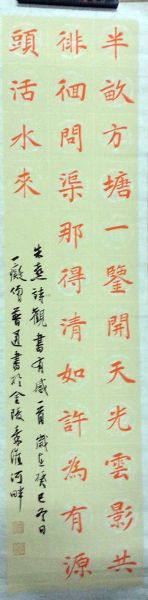 半畝方塘一鑒開天光雲影共
徘徊問渠那得清如許為有源
頭活水來
朱熹詩觀書有感一首歲在癸巳冬日
一癡傅普通書於金陵秦淮河畔